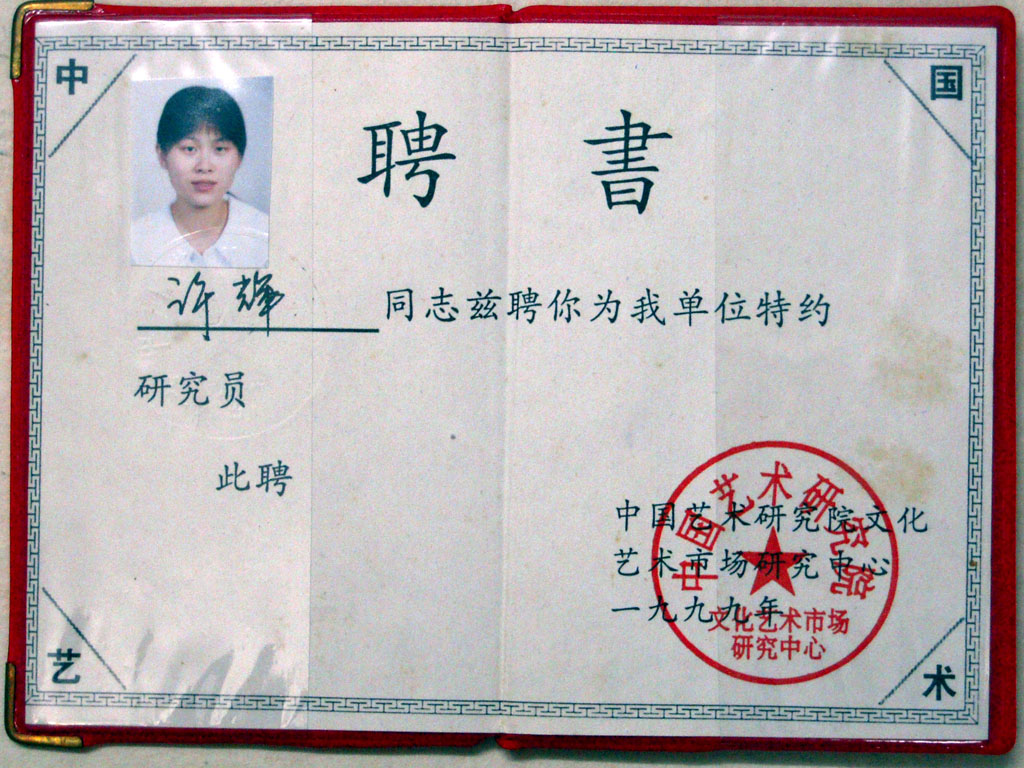 中 国
聘 書
许辉 同志兹聘你为我单位特约
研究员
此聘
中国艺术研究院文化
艺术市场研究中心
一九九九年
中国艺术研究院
文化艺术市场
研究中心
艺 术